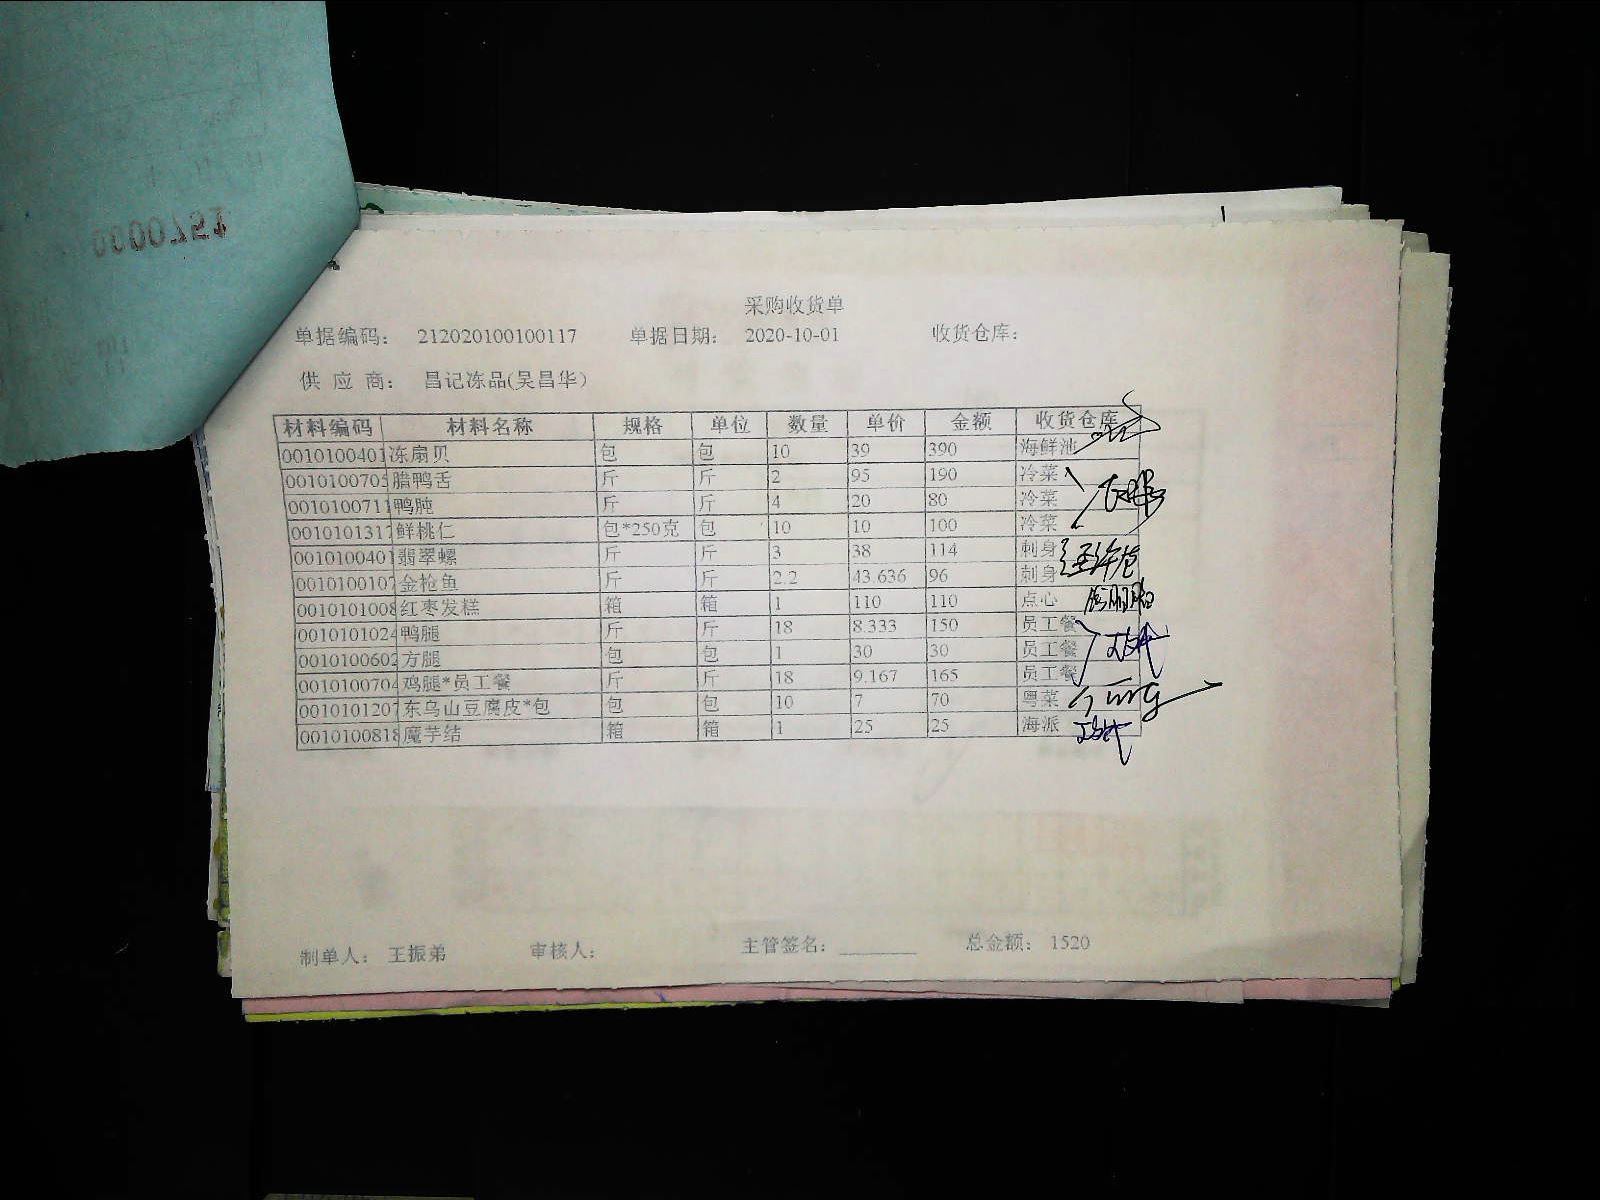 采购收货单
单据编码： 212020100100117 单据日期： 2020-10-01 收货仓库：
供 应 商： 昌记冻品(吴昌华)
材料编码 材料名称 规格 单位 数量 单价 金额 收货仓库
0010100401 冻扇贝 包 包 10 39 390 海鲜池
0010100705 腊鸭舌 斤 斤 2 95 190 冷菜
0010100711 鸭肫 斤 斤 4 20 80 冷菜
0010101317 鲜桃仁 包*250克 包 10 10 100 冷菜
0010100401 翡翠螺 斤 斤 3 38 114 刺身
0010100107 金枪鱼 斤 斤 2.2 43.636 96 刺身
0010101008 红枣发糕 箱 箱 1 110 110 点心
0010101024 鸭腿 斤 斤 18 8.333 150 员工餐
0010100602 方腿 包 包 1 30 30 员工餐
0010100704 鸡腿*员工餐 斤 斤 18 9.167 165 员工餐
0010101207 东乌山豆腐皮*包 包 包 10 7 70 粤菜
0010100818 魔芋结 箱 箱 1 25 25 海派
制单人： 王振弟 审核人： 主管签名： 总金额： 1520